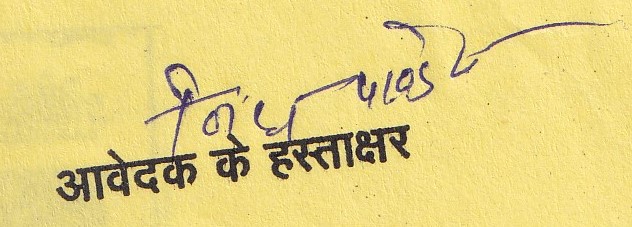 निधि पाण्डेय
आवेदक के हस्ताक्षर